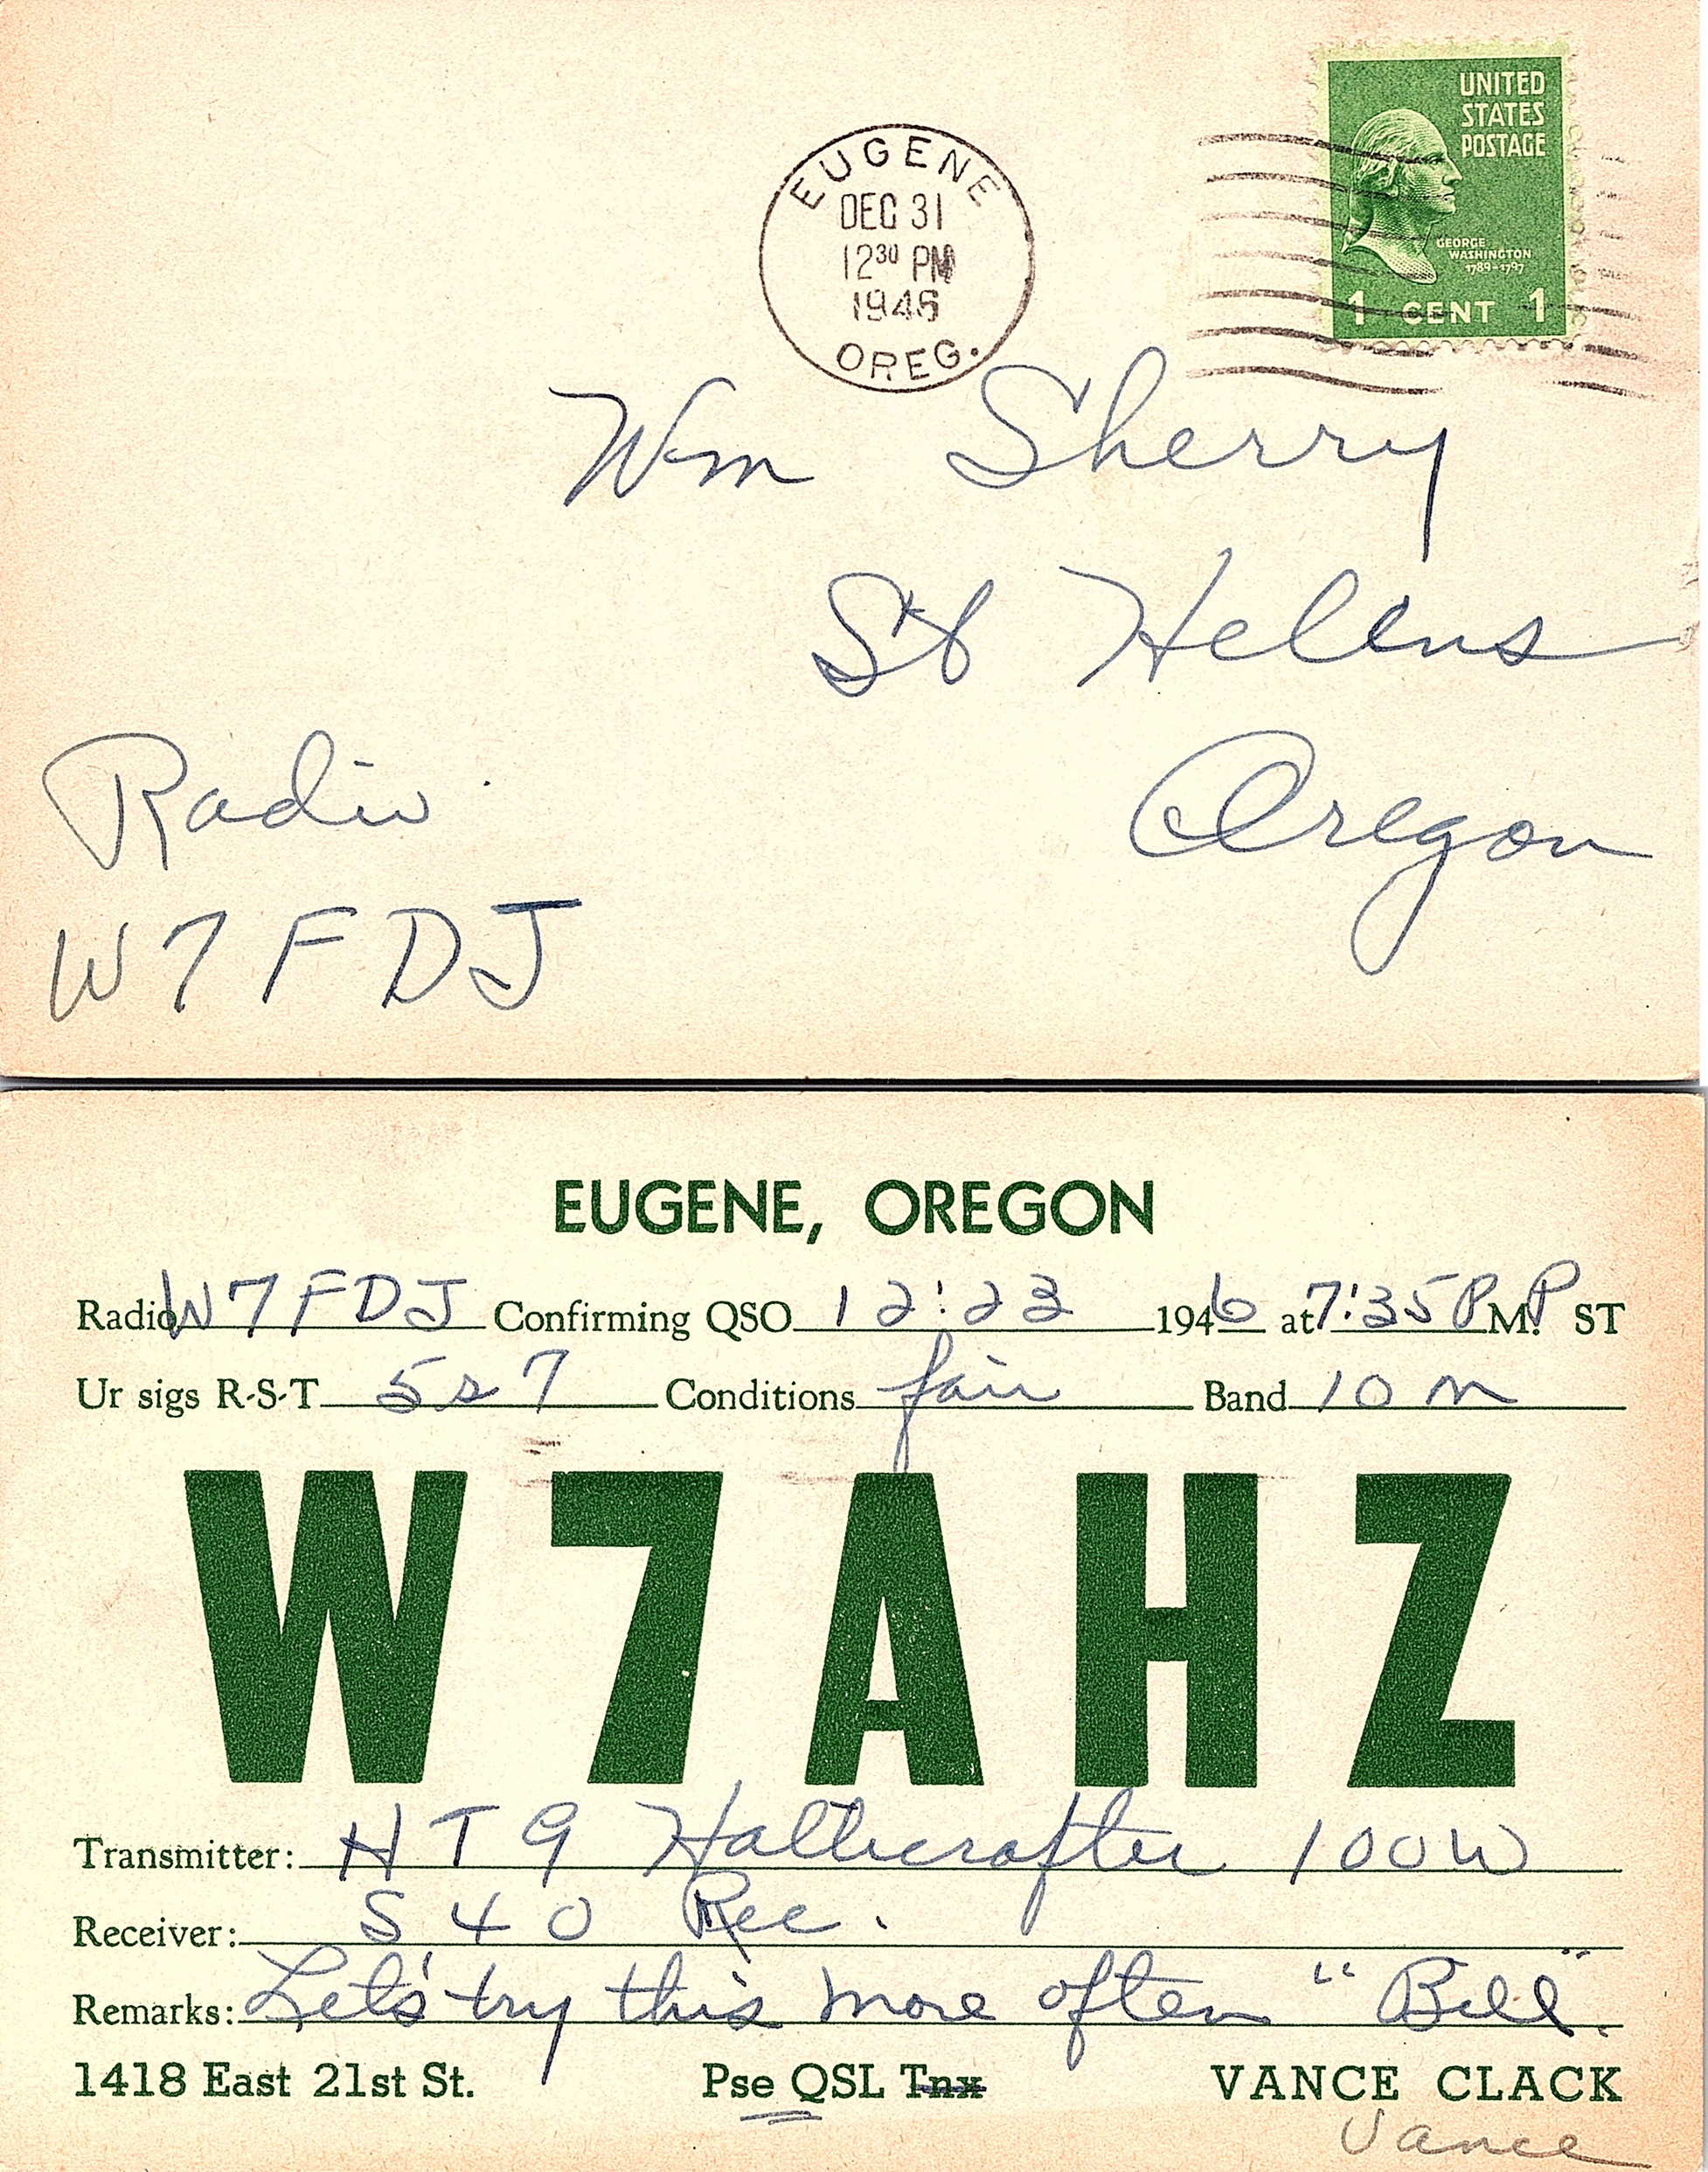 EUGENE
DEC 31
12 30 PM
1946
OREG.
UNITED
STATES
POSTAGE
GEORGE
WASHINGTON
1789-1797
1 CENT 1
Wm Sherry
St Helens
Oregon
Radio
W7FDJ
EUGENE, OREGON
Radio W7FDJ Confirming QSO 12:23 1946 at 7:35 P M. P ST
Ur sigs R-S-T 5s7 Conditions fair Band 10 m
W7AHZ
Transmitter: HT9 Hallicrafter 100W
Receiver: S40 Rec.
Remarks: Let's try this more often "Bill".
1418 East 21st St. Pse QSL Tnx VANCE CLACK
Vance